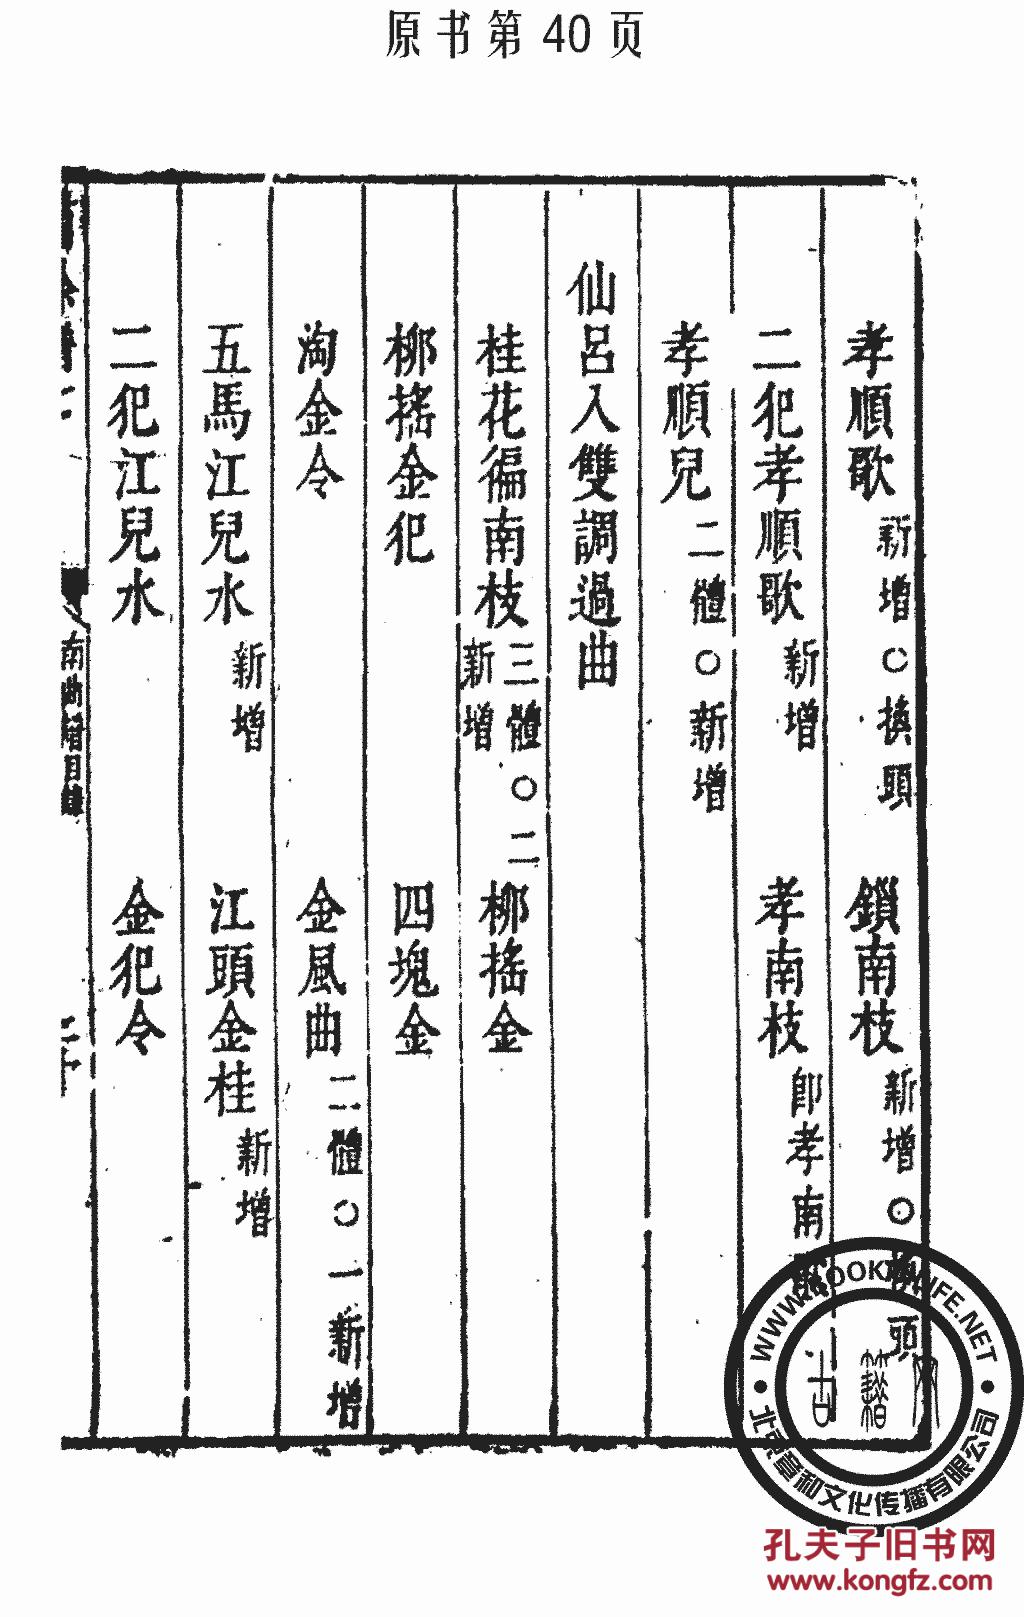 原书第40页
孝順歌 新增○換頭 鎖南枝 新增○換頭
二犯孝順歌 新增 孝南枝 卽孝南歌
孝順兒 二體○新增
仙呂入雙調過曲
桂花徧南枝 三體○二新增 柳搖金
柳搖金犯 四塊金
淘金令 金風曲 二體○一新增
五馬江兒水 新增 江頭金桂 新增
二犯江兒水 金犯令
南曲增目錄
WWW.BOOKINLIFE.NET
文化传播有限公司
孔夫子旧书网
www.kongfz.com